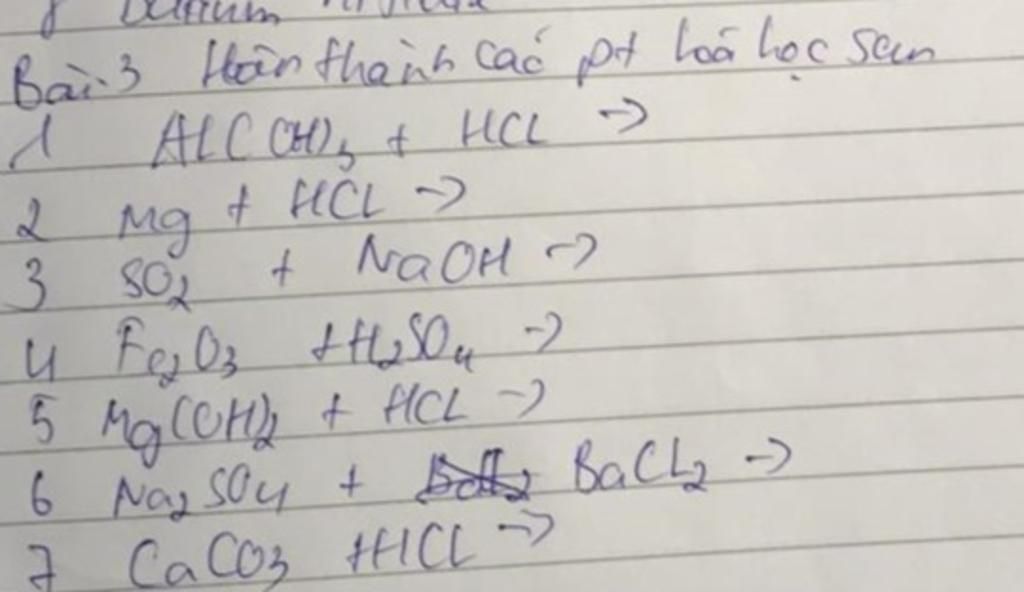 Bài 3 Hoàn thành các pt hoá học sau
1 Al(OH)3 + HCl →
2 Mg + HCl →
3 SO2 + NaOH →
4 Fe2O3 + H2SO4 →
5 Mg(OH)2 + HCl →
6 Na2SO4 + BaCl2 →
7 CaCO3 + HCl →